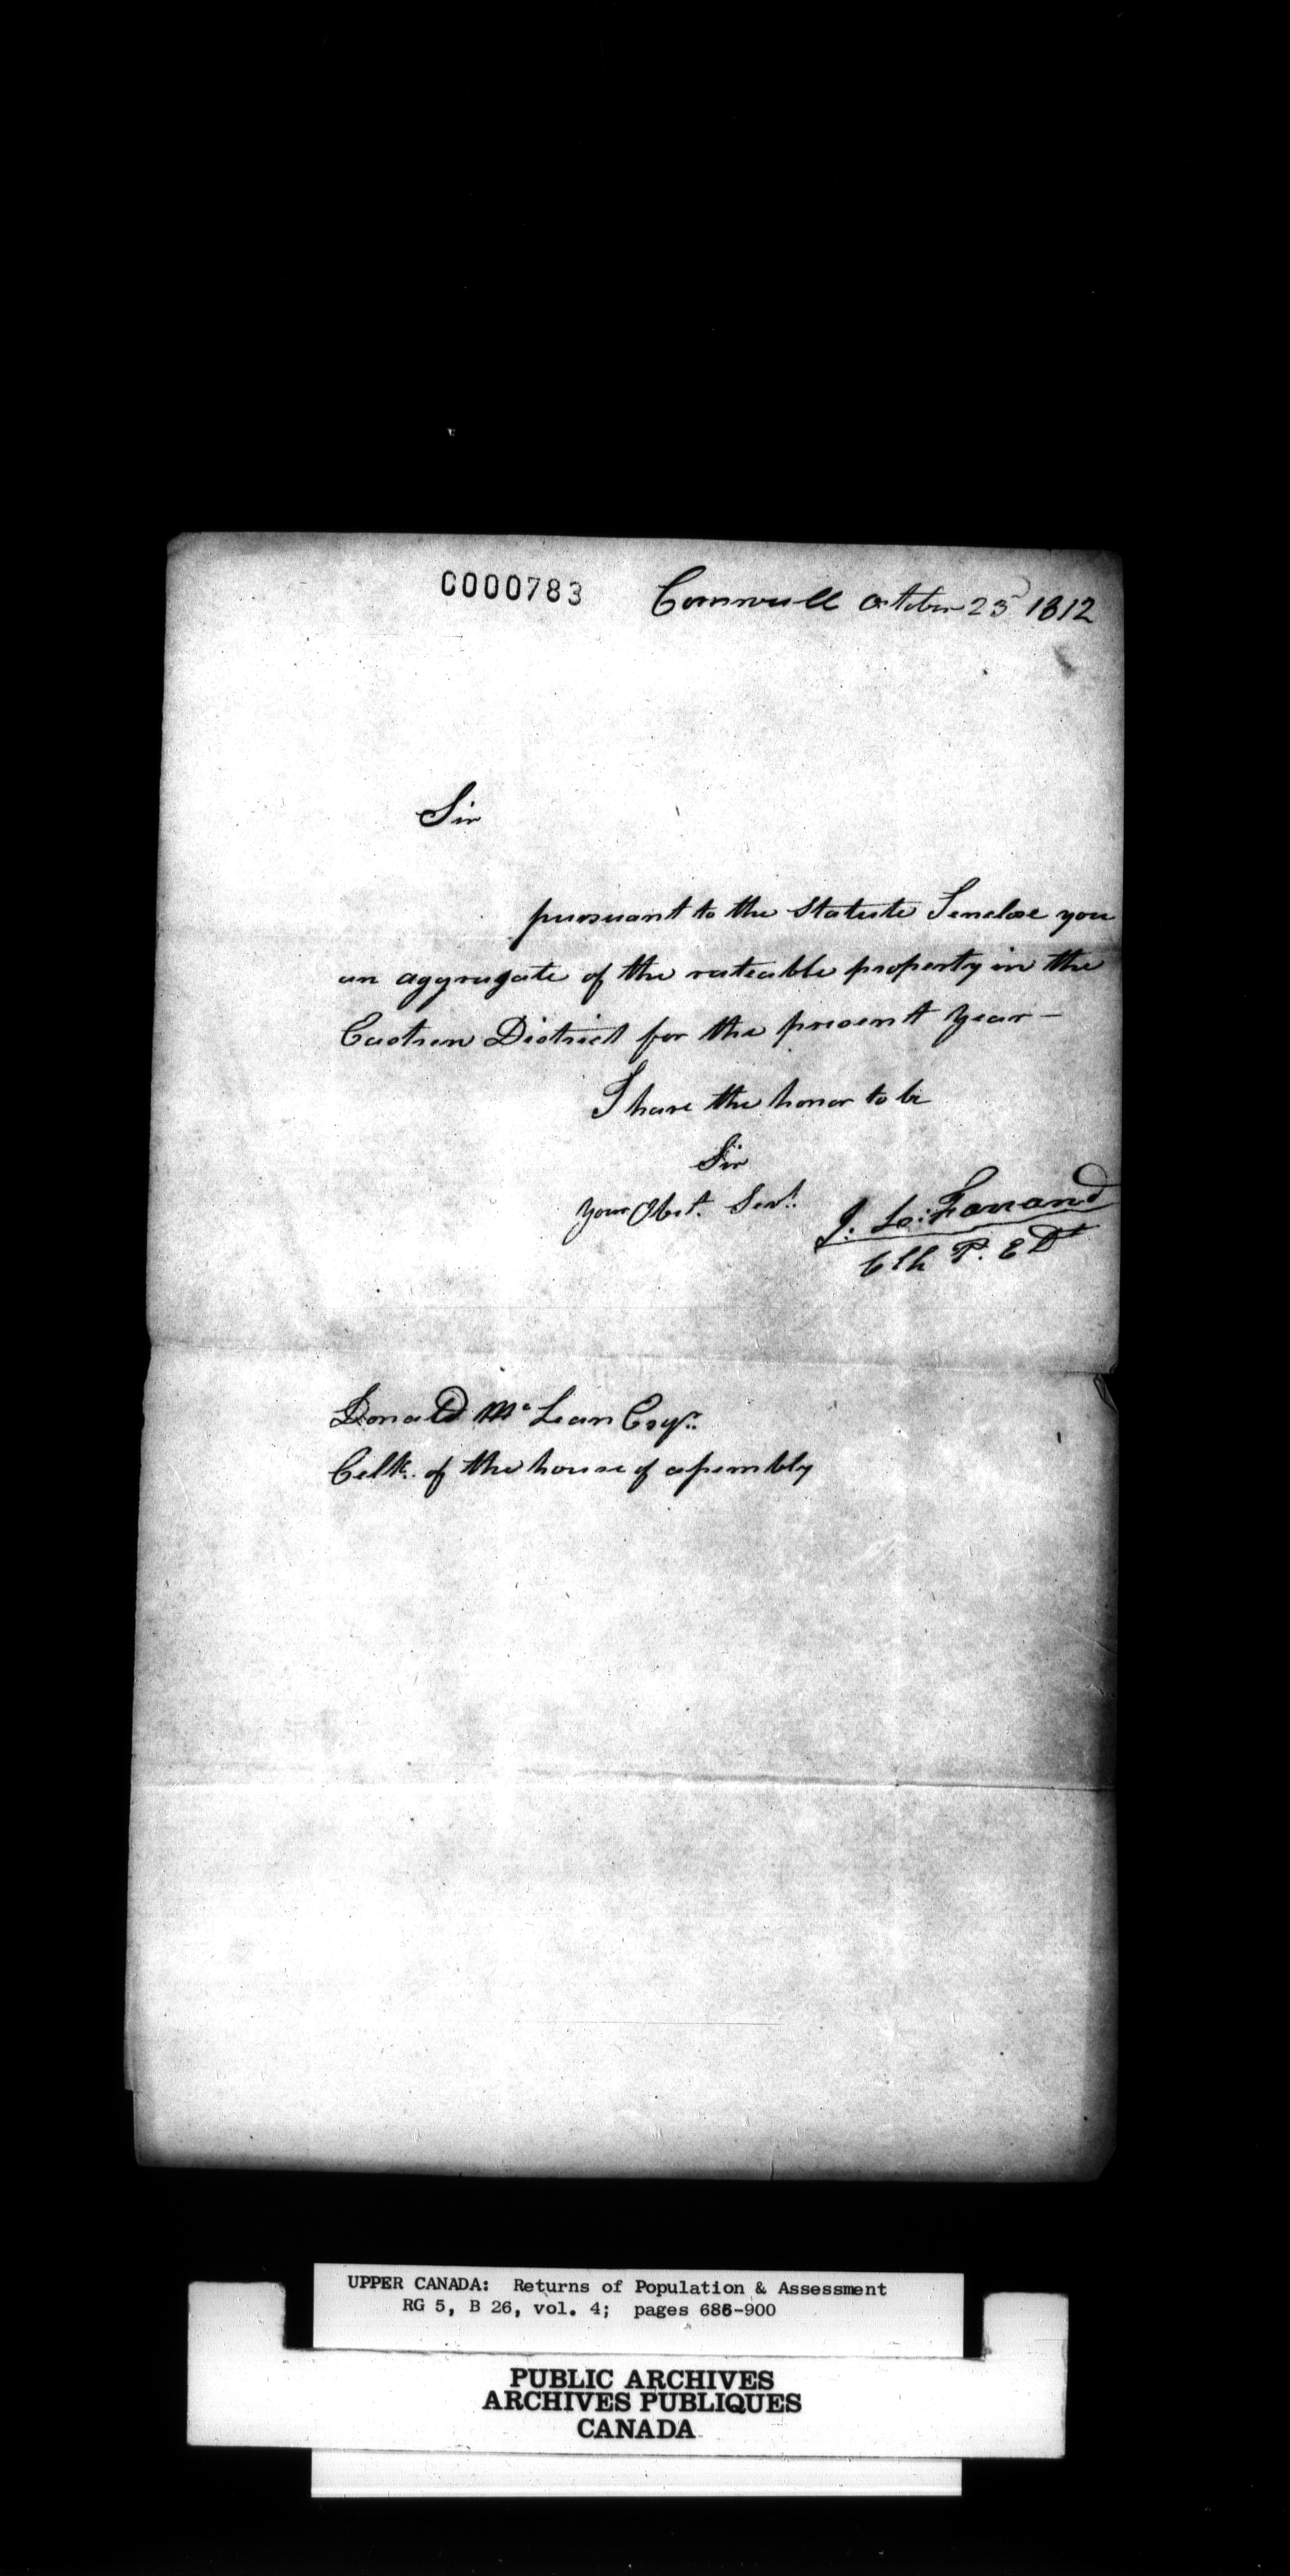 C000783 Cornwall October 23 1812
Sir
pursuant to the Statute I enclose you
an aggragate of the rateable property in the
Eastren District for the present Year —
I have the honor to be
Sir
Your Obet. Servt.
J. L: Farrand
Clk P. E Dt
Donald Mc Lean Esqr.
Celk. of the house of assembly
UPPER CANADA: Returns of Population & Assessment
RG 5, B 26, vol. 4; pages 686-900
PUBLIC ARCHIVES
ARCHIVES PUBLIQUES
CANADA